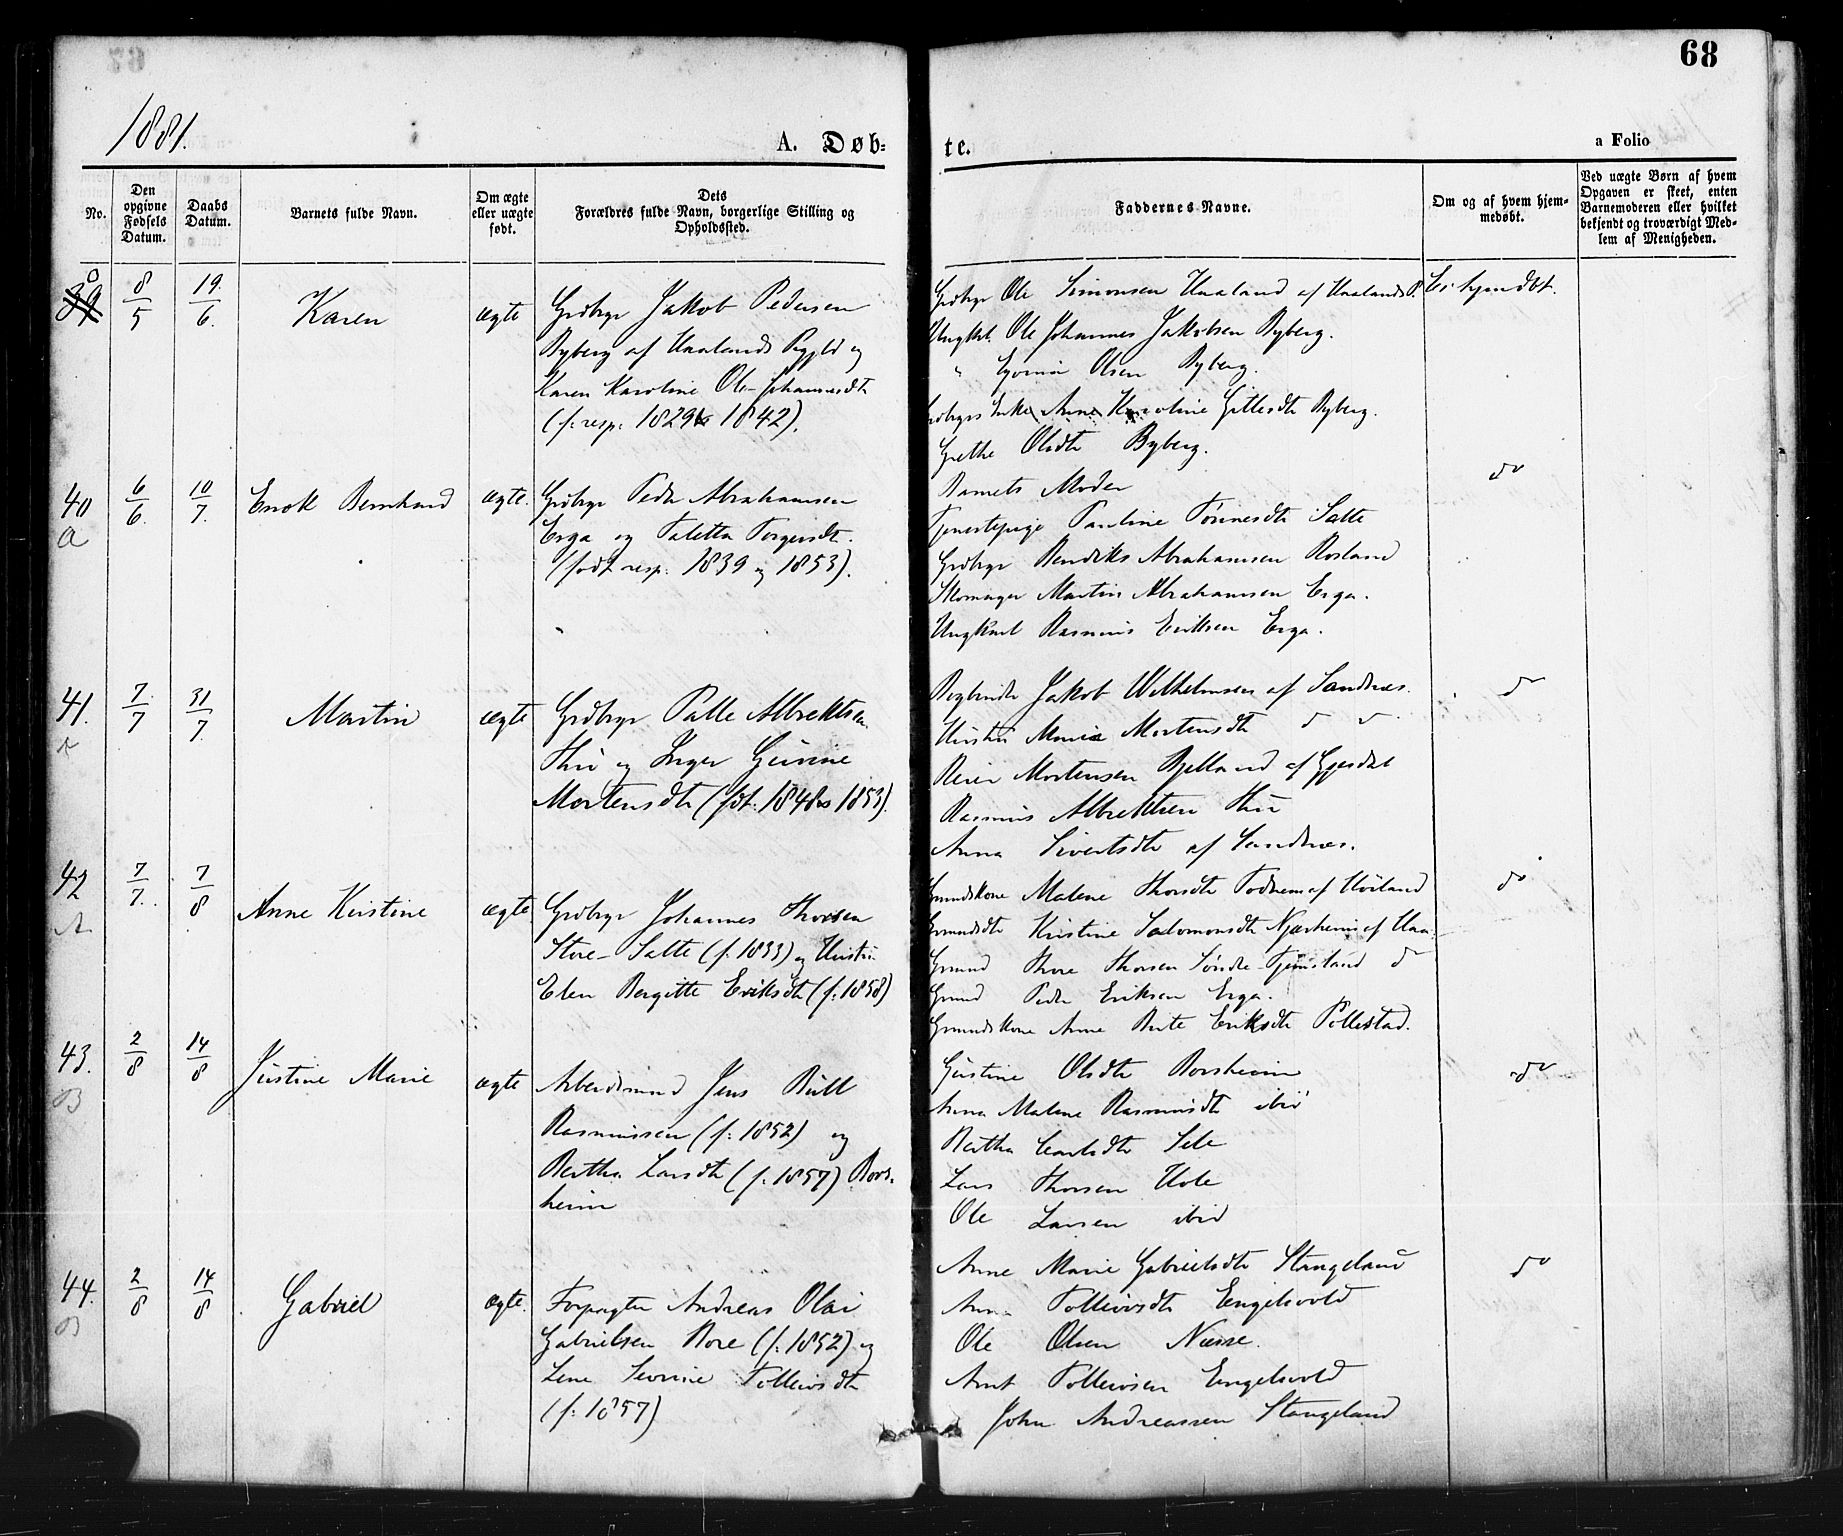 68
1881.
A. Døb-
te.
a Folio
No.
Den opgivne Fødsels Datum.
Daabs Datum.
Barnets fulde Navn.
Om ægte eller uægte født.
Dets Forældres fulde Navn, borgerlige Stilling og Opholdssted.
Faddernes Navne.
Om og af hvem hjemmedøbt.
Ved uægte Børn af hvem Opgaven er skeet, enten Barnemoderen eller hvilket bekjendt og troværdigt Medlem af Menigheden.
39
8/5
19/6.
Karen
ægte
Grdbgr Jakob Pedersen
Byberg af Haalands Prgjld og
Karen Karoline Ole-Johannesdt
(f. resp. 1829 & 1842).
Grdbgr Ole Simonsen Haaland af Haalands P.
Ungkl. Ole Johannes Jakobsen Byberg.
" Olsen Byberg.
Enke Anne Karoline Byberg.
Grethe Olsdt Byberg.
Ei hjmdbt.
40
A
6/6.
10/7.
Enok Bernhard
ægte.
Grdbgr Peder Abrahamsen
Erga og Taletta Torgersdt.
(født resp. 1839 og 1853).
Barnets Moder
Tjenestepige Pauline Tønnesdt Salte
Grdbgr Bendiks Abrahamsen Rosland
Skomager Martin Abrahamsen Erga.
Ungkarl Rasmus Eriksen Erga.
do
41.
7/7
31/7.
Martin
ægte
Grdbgr Palle Albrektsen
Thu og Inger Gurine
Mortensdt (fdt. 1848 & 1853).
Jakob Wilhelmsen af Sandnæs.
Hustru Maria Mortensdt do
Reier Mortensen Bjelland af Gjesdal
Rasmus Albrektsen Thu
Anna Sivertsdt af Sandnæs.
do
42
A
7/7.
7/8
Anne Kristine
ægte
Grdbgr Johannes Thorsen
Store-Salte (f. 1833) og Hustru
Elen Bergitte Eriksdt (f. 1858)
Grmndskone Malene Thorsdt Todnem af Høiland
Kristine Salomonsdt Njærheim af Haa
Grmnd Thore Thorsen Søndre-Tjemsland do
Grmnd Peder Eriksen Erga.
Grmndskone Anne Berte Eriksdt Pollestad.
do
43.
B
2/8
14/8
Justine Marie
ægte
Arbeidsmnd Jens Bull
Rasmussen (f. 1852) og
Bertha Larsdt (f. 1857) Bors-
heim
Gustine Olsdt Borsheim
Anna Malene Rasmusdt ibid
Bertha Sele
Lars Thorsen Hole
Ole Larsen ibid
do
44.
B
2/8
14/8
Gabriel
ægte.
Forpagter Andreas Olai
Gabrielsen Bore (f. 1852) og
Lene Severine Tollevsdt
(f. 1857)
Anne Marie Gabrielsdt Stangeland
Anna Tollevsdt Engelsvold
Ole Olsen Næsse.
Arnt Tollevsen Engelsvold
John Andreassen Stangeland
do